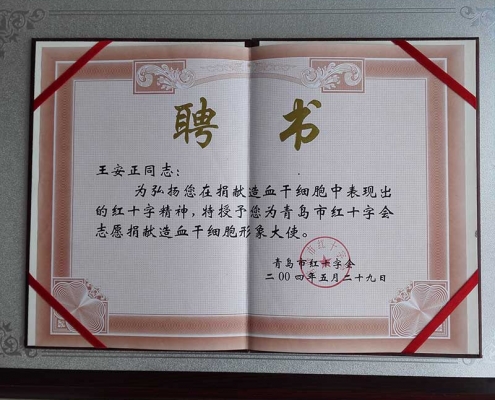 聘书
王安正同志:
为弘扬您在捐献造血干细胞中表现出
的红十字精神,特授予您为青岛市红十字会
志愿捐献造血干细胞形象大使。
青岛市红十字会
二00四年五月二十九日